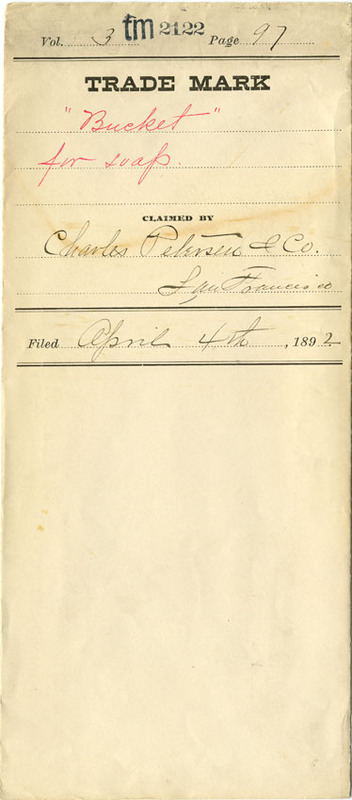 Vol. 3 tm 2122 Page 97
TRADE MARK
"Bucket"
for soap.
CLAIMED BY
Charles Petersen & Co.
San Francisco
Filed April 4th, 1892